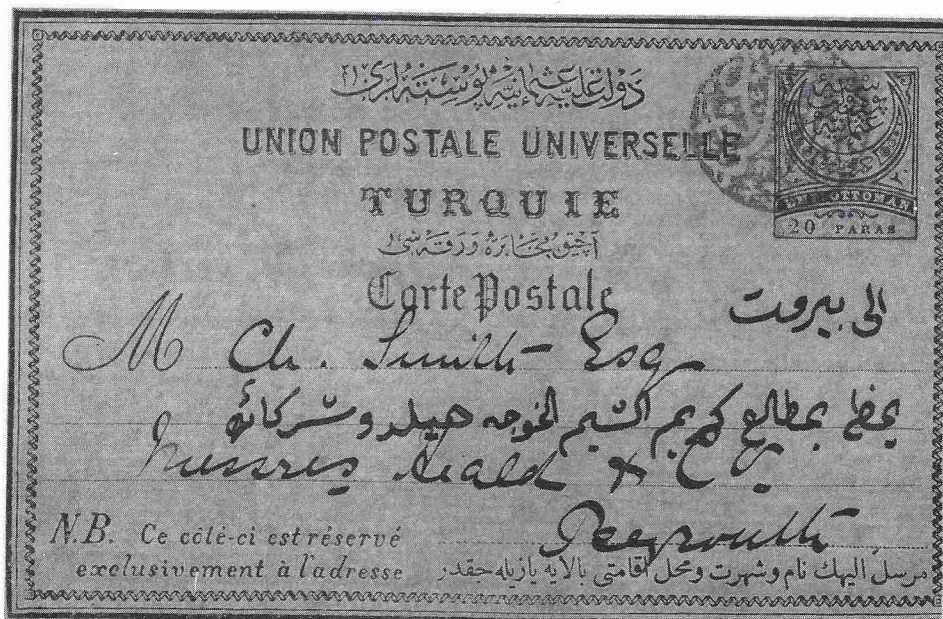 دولت علیهٔ عثمانیه پوسته لری
UNION POSTALE UNIVERSELLE
TURQUIE
آچیق مخابره ورقه سی
Carte Postale
EMP. OTTOMAN
20 PARAS
الى بيروت
M Ch. Smith Esq
يحظى بمطالع كريم الشيم الخوجه هيلد وشركائه
Messres Heald &
Beyrouth
N.B. Ce côté-ci est réservé
exclusivement à l'adresse
مرسل اليهك نام وشهرت ومحل اقامتى بالايه يازيله جقدر